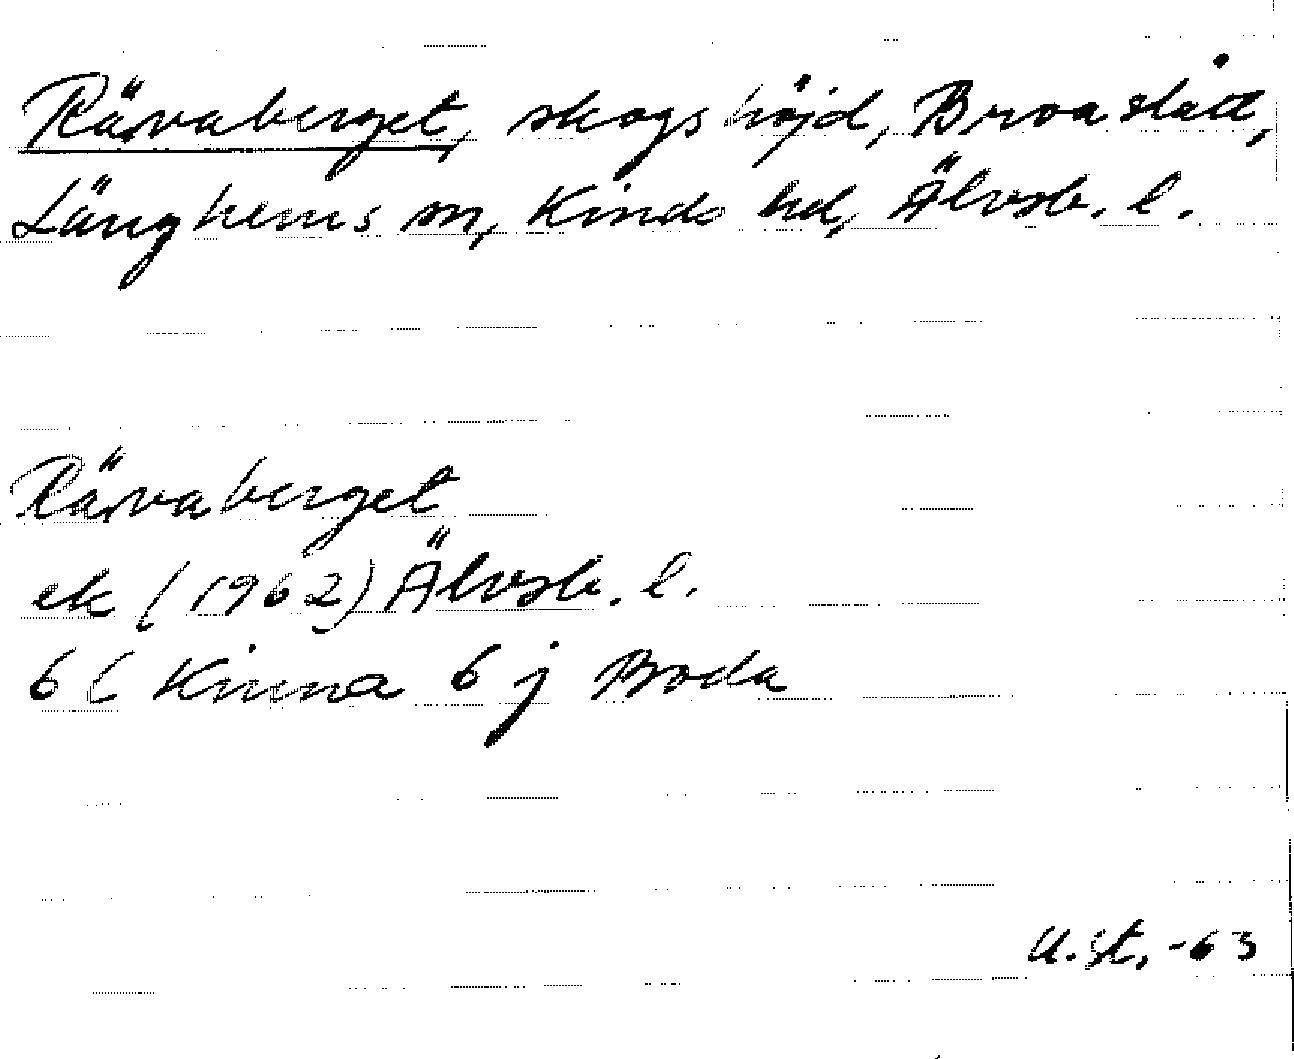 Rävaberget, skogshöjd, Broaslätt,
Länghems sn, Kinds hd, Älvsb. l.
Rävaberget
ek (1962) Älvsb. l.
6 C Kinna 6 j Boda
U.St, -63